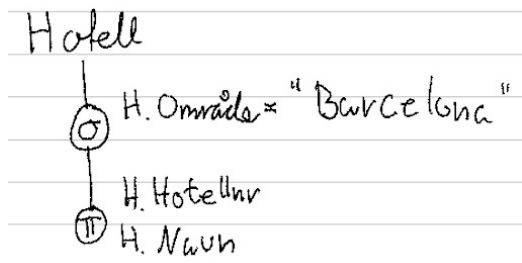 Hotell
σ H. Område = "Barcelona"
H. Hotellnr
π H. Navn